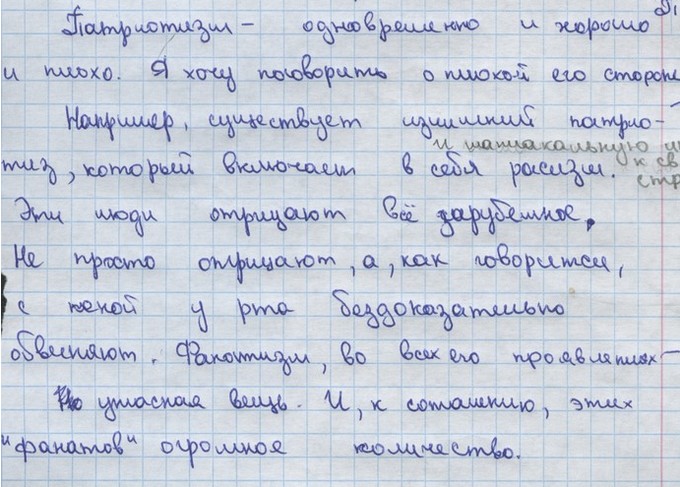 Патриотизм - одновременно и хорошо
и плохо. Я хочу поговорить о плохой его стороне
Например, существует излишний патрио-
и маниакальную
к св
стр
тиз, который включает в себя расизм.
Эти люди отрицают всё зарубежное.
Не просто отрицают, а, как говорится,
с пеной у рта бездоказательно
обвеняют. Фанотизм, во всех его проявлениях -
ужасная вещь. И, к сожалению, этих
"фанатов" огромное количество.